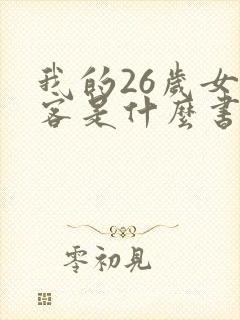 我的26歲女
客是什麼書
零初見